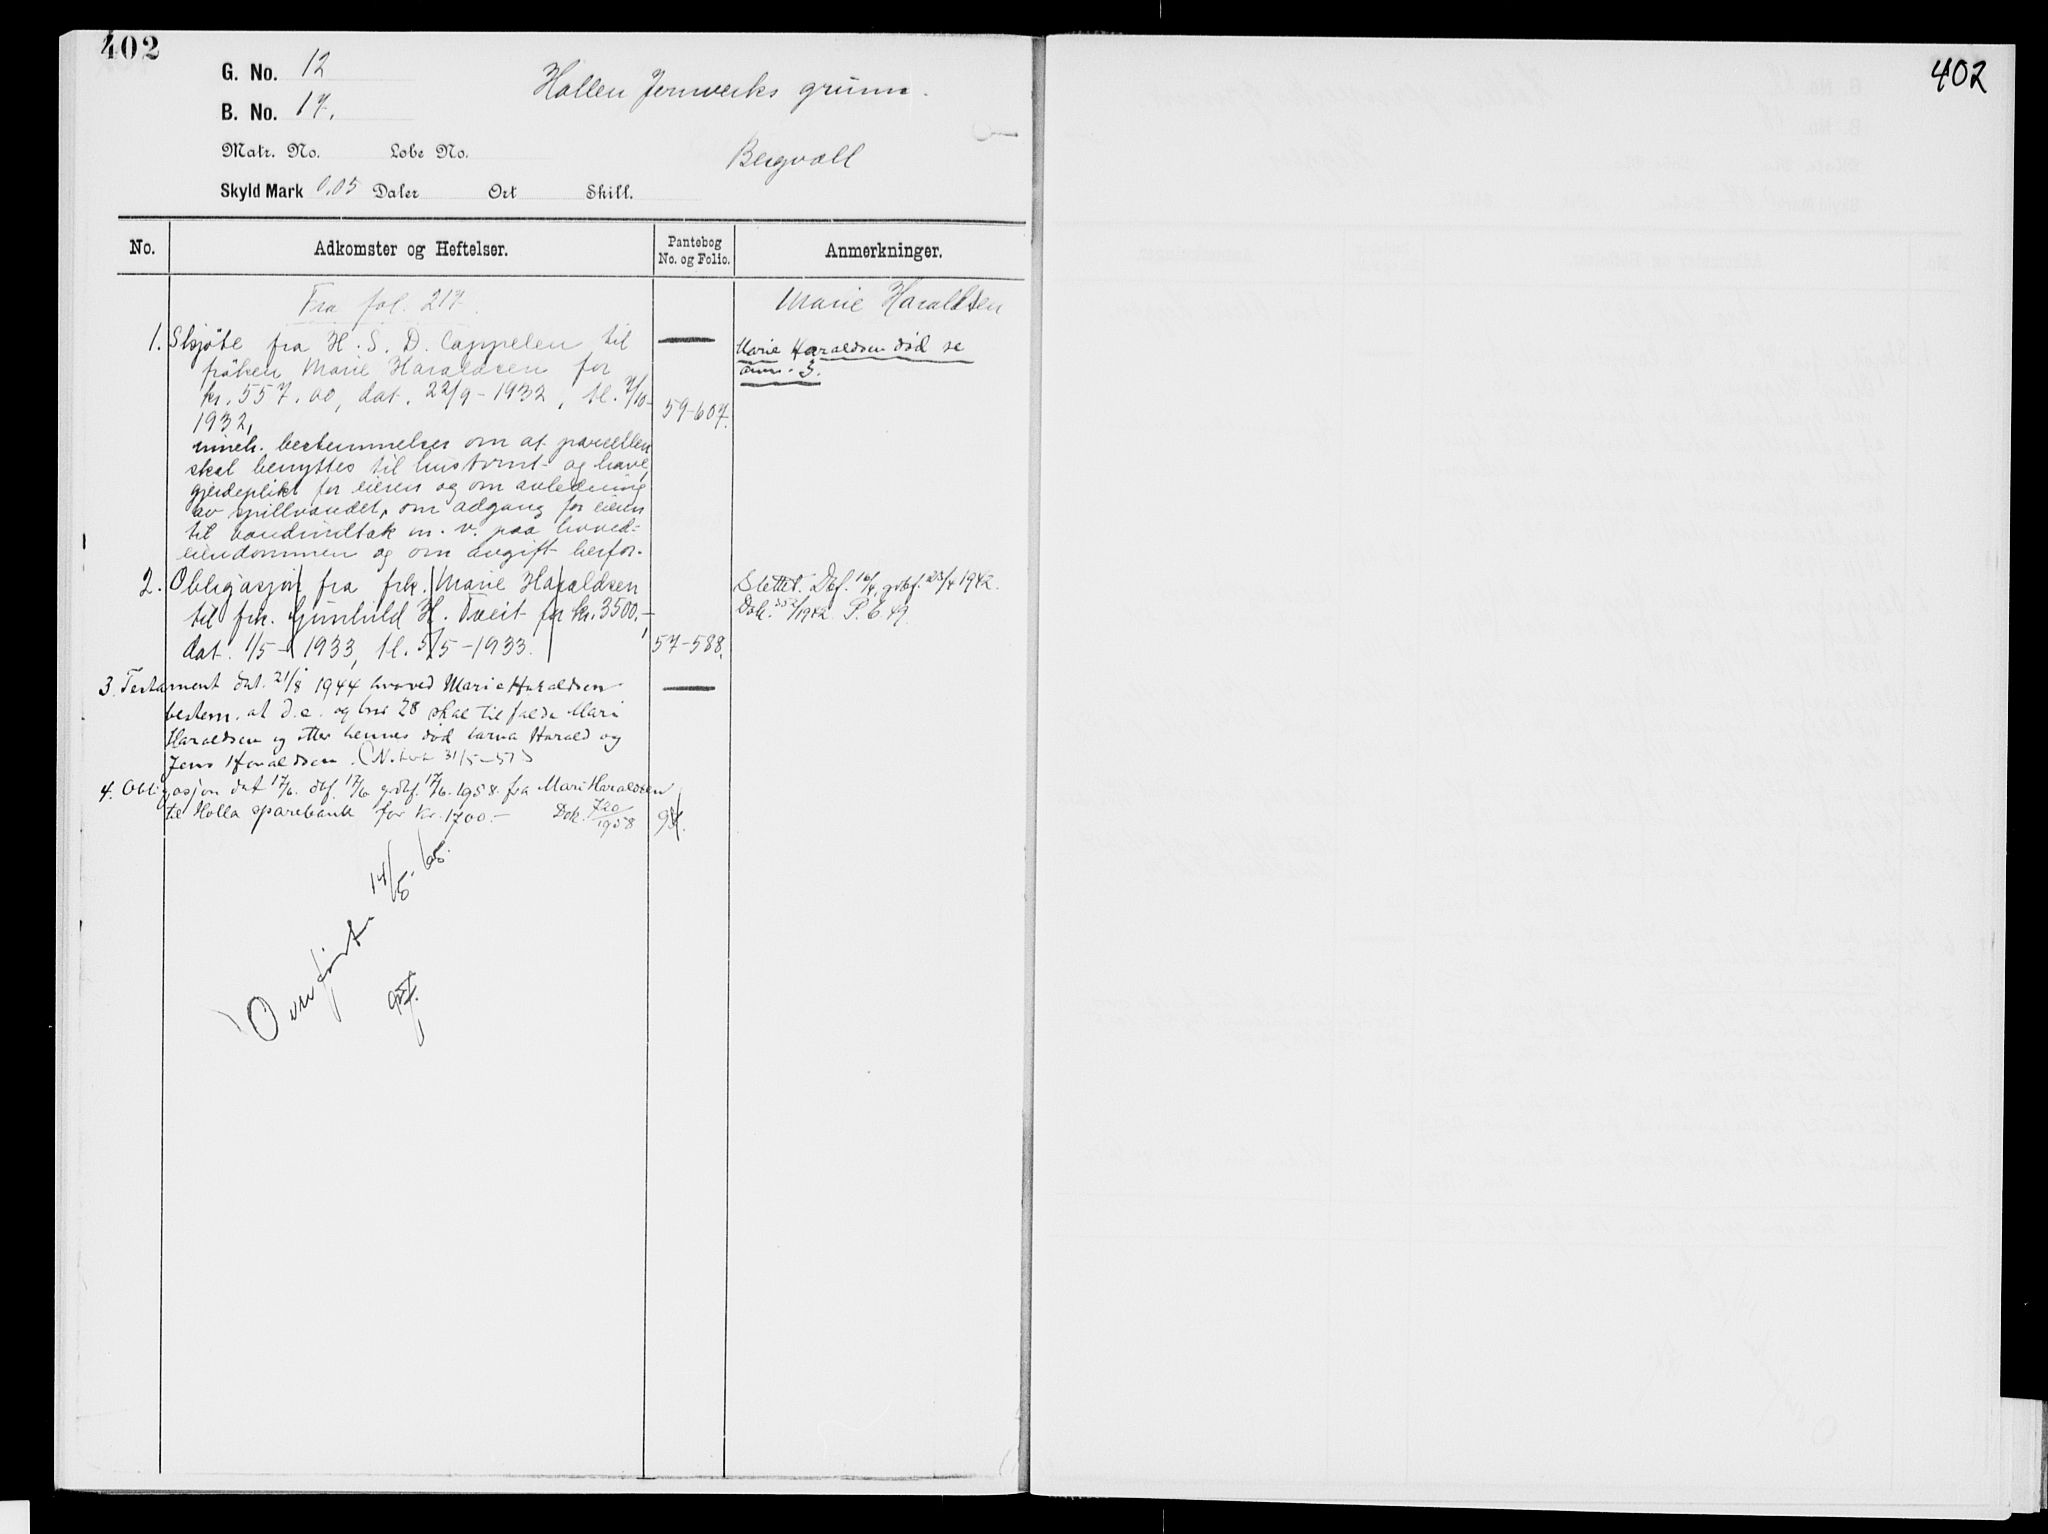 402
G. No. 12
Hollen Jernverks grunn.
B. No. 17.
Matr. No. Løbe No.
Bergvoll
Skyld Mark 0,05 Daler Ort Skill.
No. Adkomster og Heftelser. Pantebog No. og Folio. Anmerkninger.
Fra fol. 217. Marie Haraldsen
1. Skjöte fra H. S. D. Cappelen til
fröken Marie Haraldsen for
kr. 557.00, dat. 22/9-1932, tl. 7/10-
1932, 59-607.
inneh. bestemmelser om at parcellen
skal benyttes til hustomt og have,
gjerdeplikt for eieren og om avledning
av spillvandet, om adgang for eieren
til vandinntak m.v. paa hoved-
eiendommen og om avgift herfor.
Marie Haraldsen död se
anm. 3.
2. Obligasjon fra frk. Marie Haraldsen
til frk. Gunhild H. Tveit for kr. 3500.-,
dat. 1/5-1933, tl. 5/5-1933. 57-588.
Slettet. Dbf. 16/4, grbf. 23/4 1942.
Dok. 352/1942. P. C 49.
3. Testament dat. 21/8 1944 hvoved Marie Haraldsen
bestem. at d.e. og bnr 28 skal tilfalde Mari
Haraldsen og etter hennes död barna Harald og
Jens Haraldsen. (N. bok 31/5-51)
4. Obligasjon dat 17/6. dbf. 17/6 grbf. 17/6. 1958. fra Mari Haraldsen
til Holla sparebank for kr. 1700.- Dok. 720/1958
Overfört 14/5. 65.
402